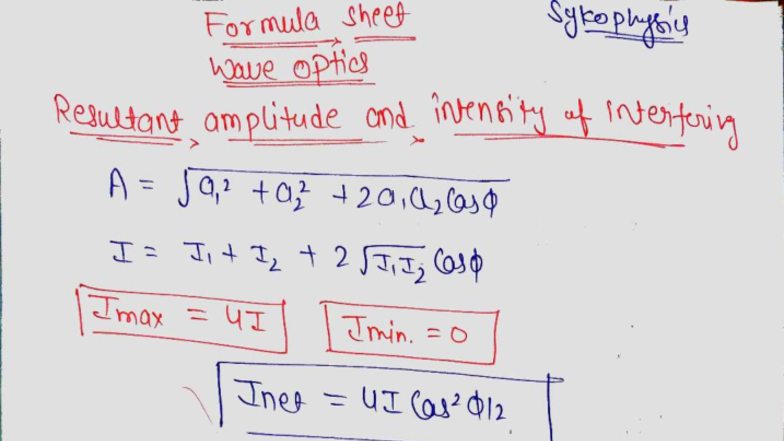 Formula sheet
Sykophysics
Wave optics
Resultant amplitude and intensity of interfering
A = √a₁² + a₂² + 2a₁a₂ Cosϕ
I = I₁ + I₂ + 2√I₁I₂ Cosϕ
Imax = 4I
Imin. = 0
Inet = 4I Cos² ϕ/2